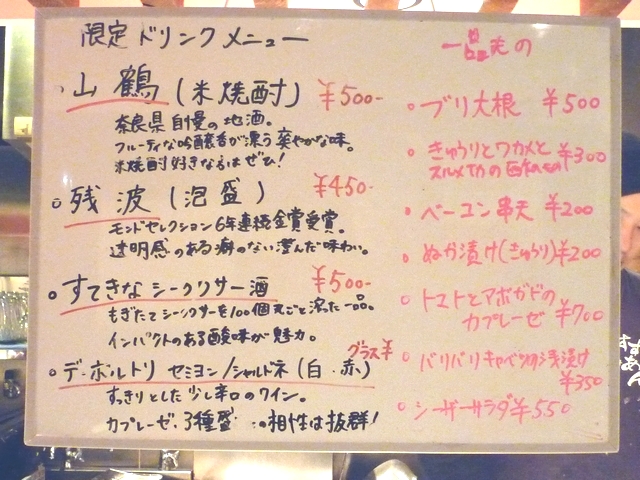 限定ドリンクメニュー
山鶴(米焼酎) ¥500-
奈良県自慢の地酒。
フルーティな吟醸香が漂う爽やかな味。
米焼酎好きなるはぜひ!
残波(泡盛) ¥450-
モンドセレクション6年連続金賞受賞。
透明感のある癖のない澄んだ味わい。
すてきなシークワサー酒 ¥500-
もぎたてシークワサーを100個丸ごと搾った一品。
インパクトのある酸味が魅力。
グラス¥
デ・ボルトリ セミヨン/シャルドネ(白・赤)
すっきりとした少し辛口のワイン。
カプレーゼ・3種盛 の相性は抜群!
一品もの
ブリ大根 ¥500
きゅうりとワカメと
スルメイカの酢のもの ¥300
ベーコン串天 ¥200
ぬか漬け(きゅうり) ¥200
トマトとアボガドの
カプレーゼ ¥700
バリバリキャベツの浅漬け
¥350
シーザーサラダ ¥550